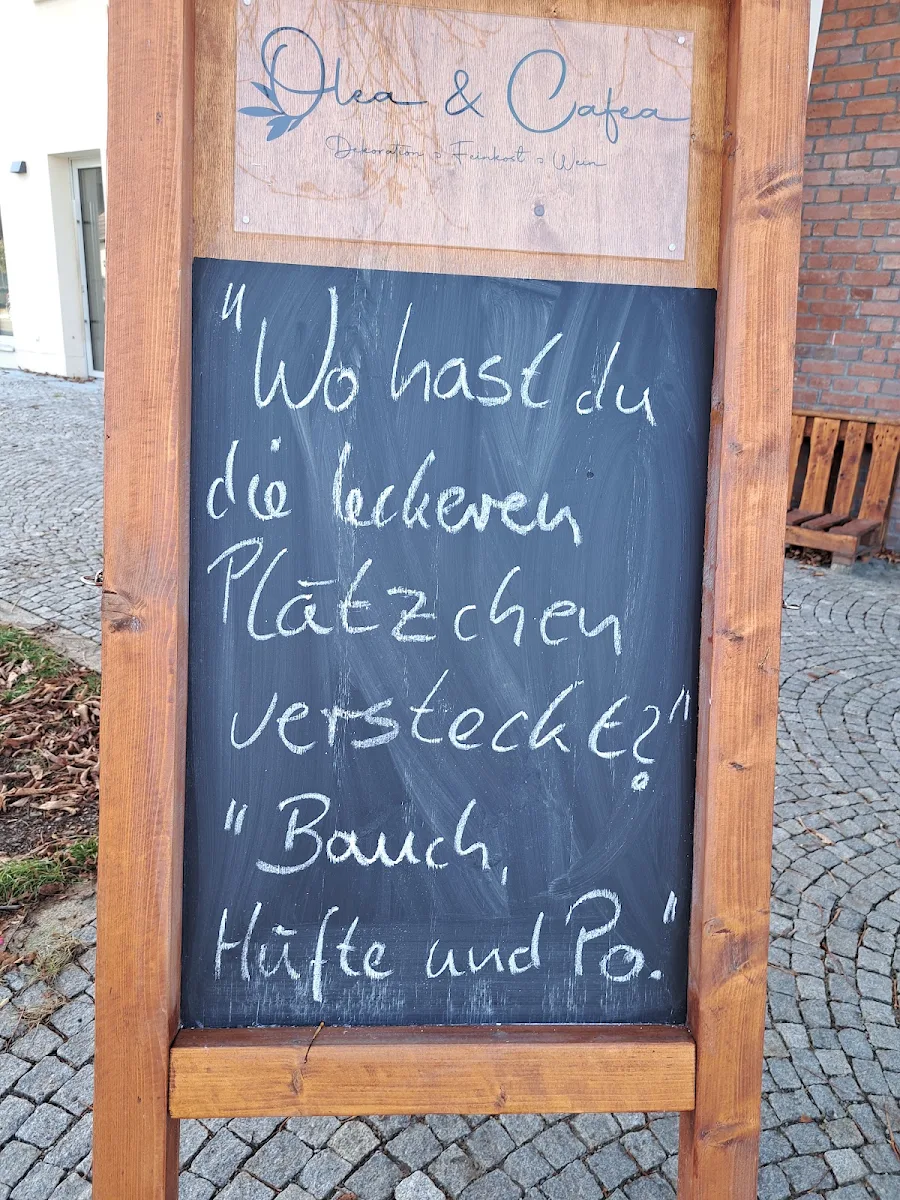 Olea & Cafea
Dekoration ○ Feinkost ○ Wein
"Wo hast du
die leckeren
Plätzchen
versteckt?"
"Bauch,
Hüfte und Po."